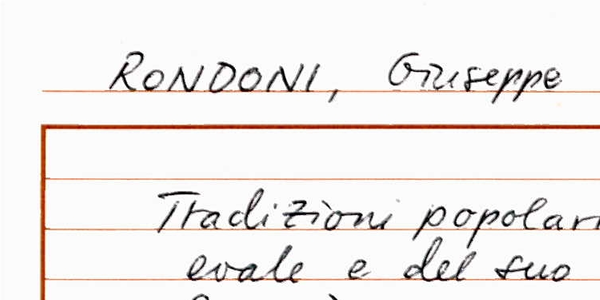 RONDONI, Giuseppe
Tradizioni popolari
evale e del suo